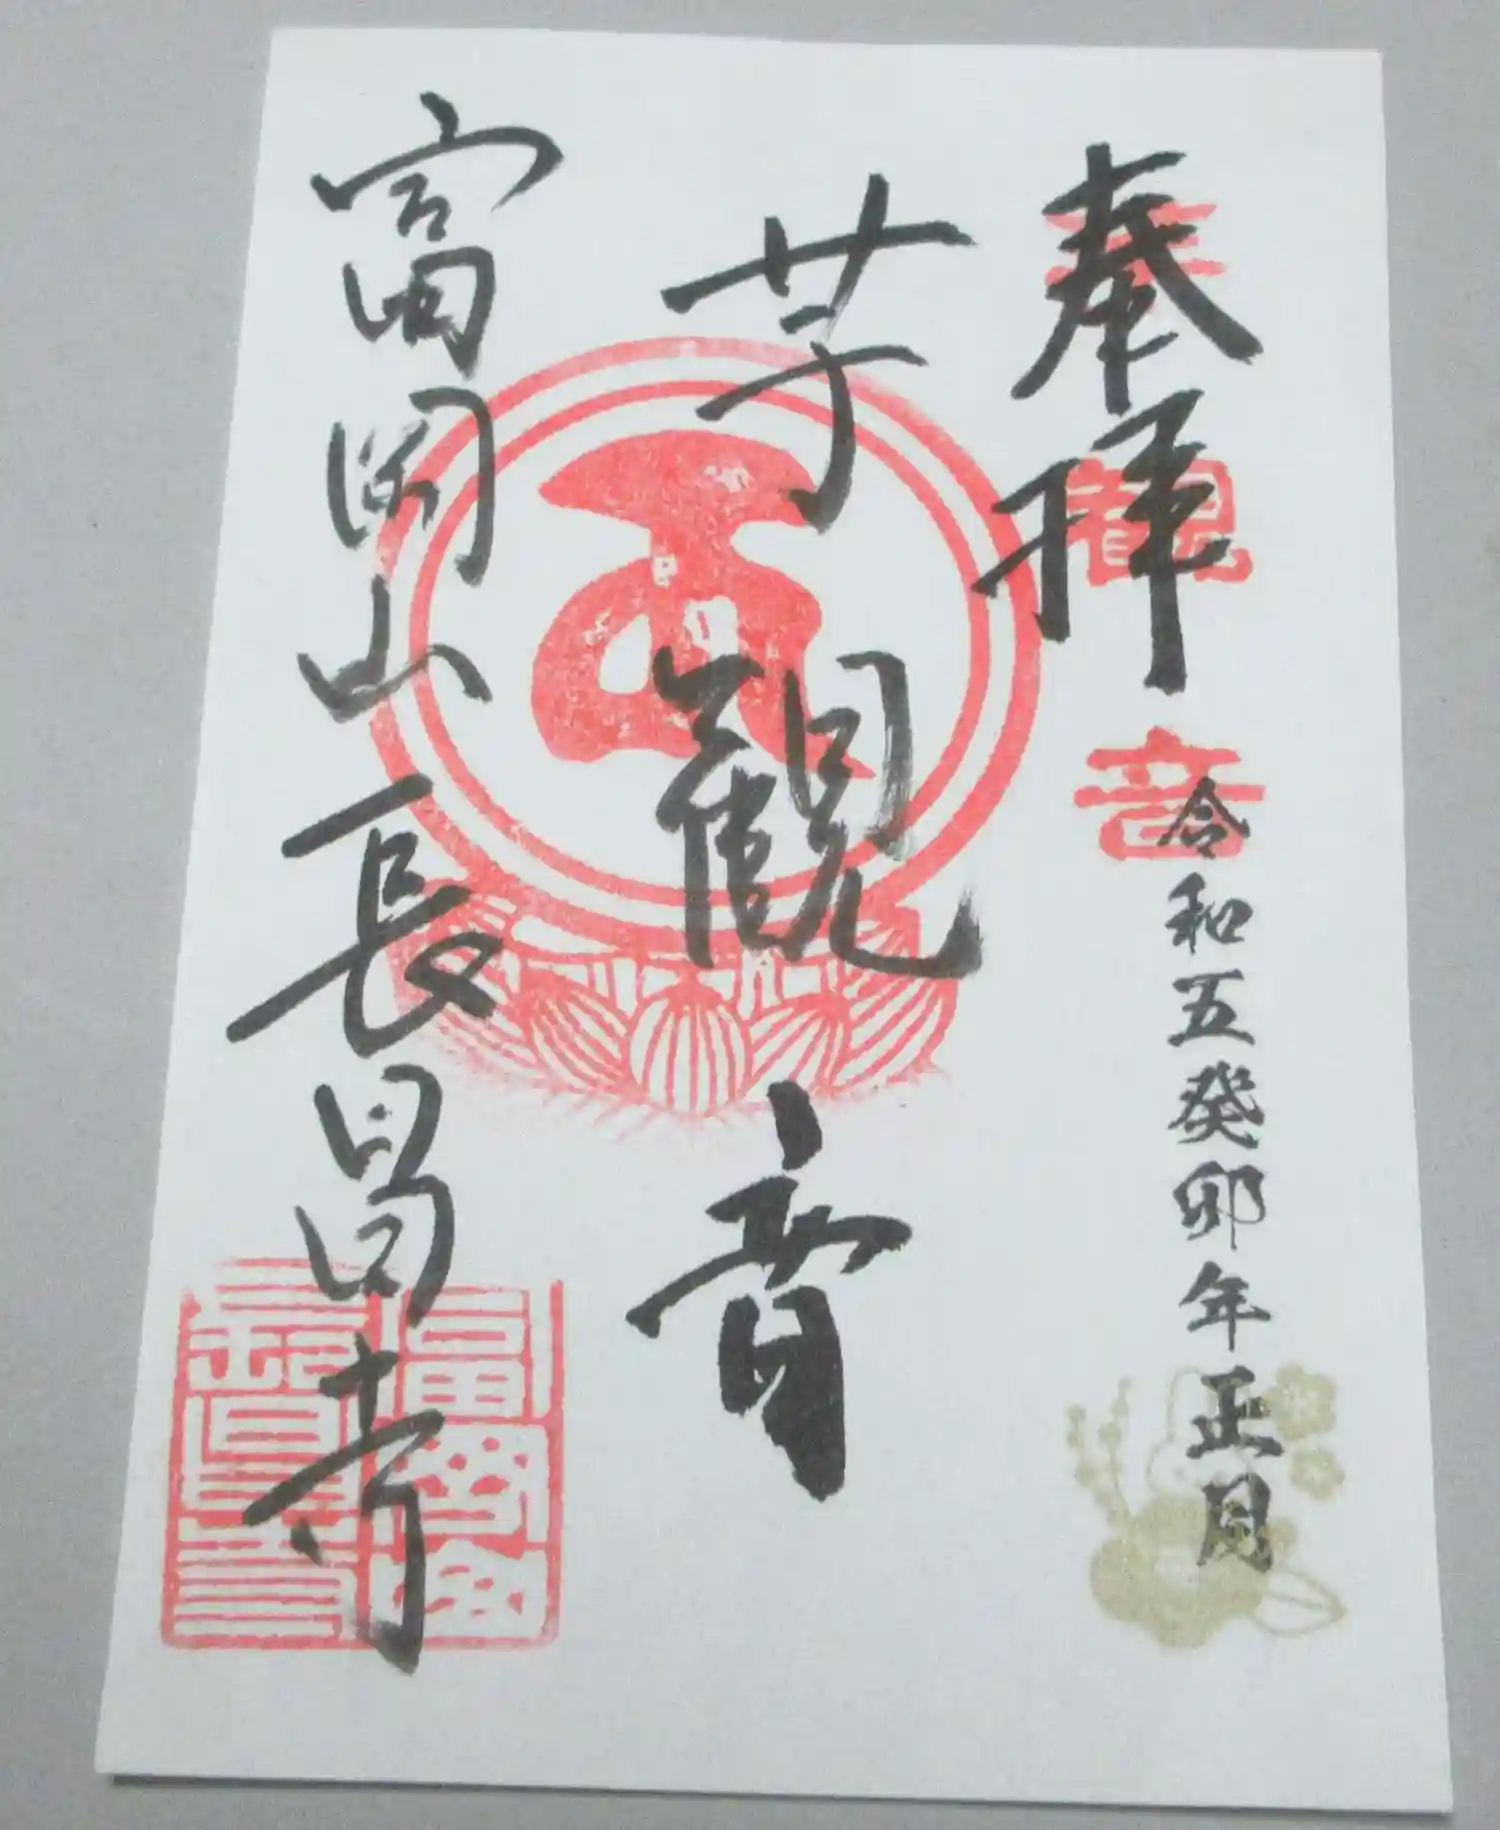 奉拝
芋観音
令和五癸卯年正月
芋観音
富岡山長昌寺
富岡山
長昌寺